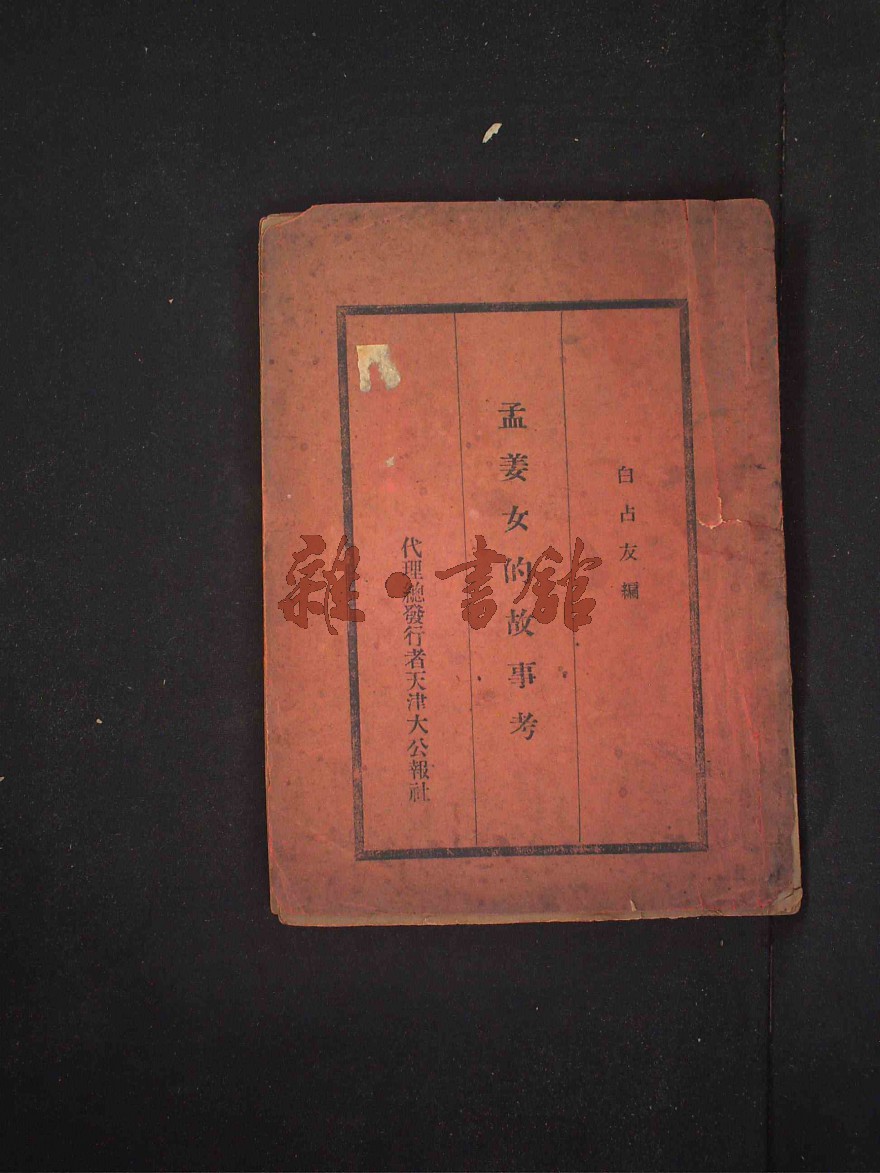 白占友編
孟姜女的故事考
代理總發行者天津大公報社
雜·書館